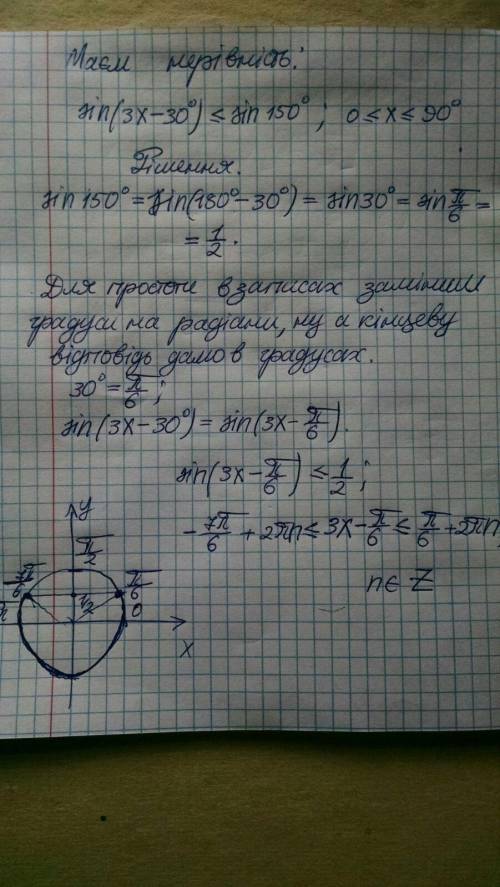 Маєм нерівність:
sin(3x−30°) ≤ sin 150°; 0 ≤ x ≤ 90°
Рішення.
sin 150° = sin(180° − 30°) = sin 30° = sin π/6 =
= 1/2.
Для простоти в записах замінимо
градуси на радіани, ну а кінцеву
відповідь дамо в градусах.
30° = π/6;
sin(3x−30°) = sin(3x − π/6).
sin(3x − π/6) ≤ 1/2;
−7π/6 + 2πn ≤ 3x − π/6 ≤ π/6 + 2πn
n ∈ Z
y
π/2
−7π/6 1/2 π/6
0
x